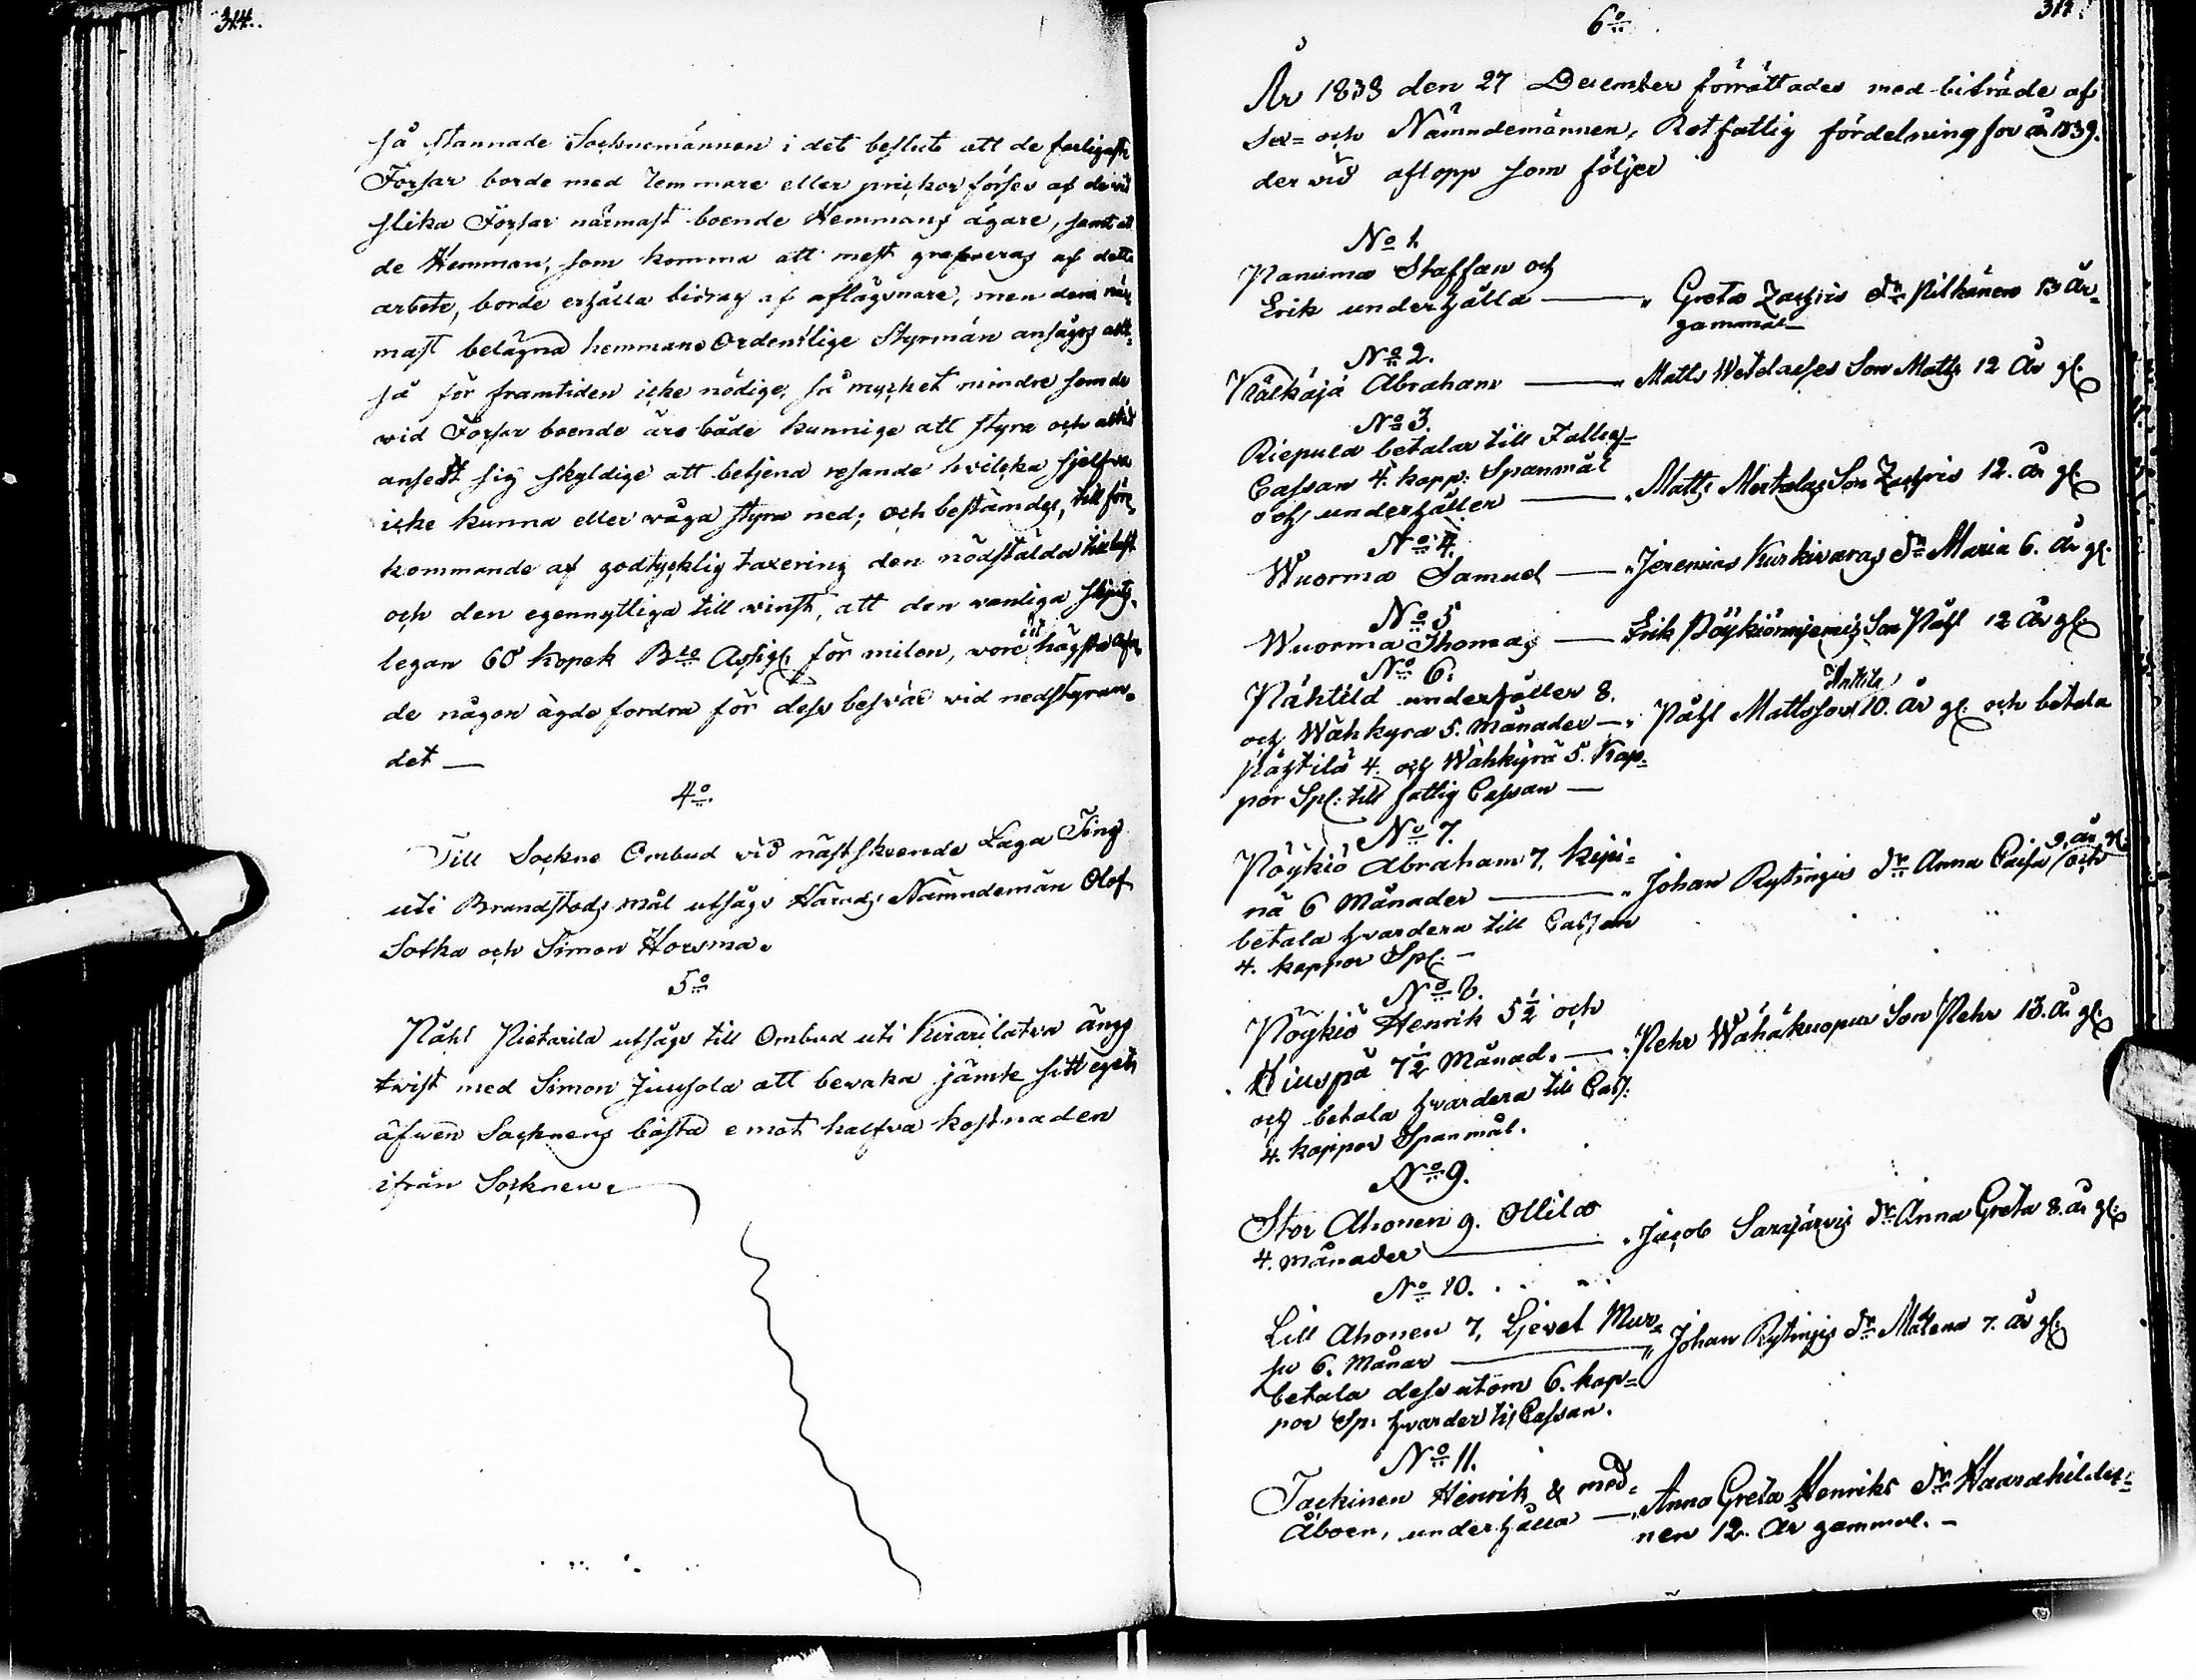 314.
så stannade Socknemännen i det beslut att de farligaste
Forsar borde med remmare eller prickor förses af de vid
slika Forsar närmast boende Hemmans ägare, samt att
de Hemman, som komma att mest graveras af detta
arbete, borde erhålla bidrag af aflägsnare, men dem när-
mast belägna hemman. Ordentlige Styrmän ansågos allt-
så för framtiden icke nödige, så mycket mindre som de
wid Forsar boende äro både kunnige att styra och altid
ansedt sig skyldige att betjena resande hvilcka sjelfva
icke kunna eller våga styra ned; och bestämdes, till före-
kommande af godtycklig taxering den nödstälda till last
och den egennyttiga till vinst, att den vanliga skjuts-
legan 60 kopek B:co Assig: för milen, vore det högsta
de någon ägde fordra för dess besvär vid nedstyran-
det —
4:o
Till Sockne Ombud vid näst skeende Laga Ting
uti Brandstods mål utsågs Härads Nämndemän Olof
Sotka och Simon Horsma.
5:o
Påhl Pietarila utsågs till Ombud uti Kivarilatva ängs
twist med Simon Juusola att bevaka jämte sitt eget,
äfwen Socknens bästa emot halfva kostnaden
ifrån Socknen.
6:o
År 1838 den 27 December förrättades med biträde af
Sex= och Nämndemännen, Rotfattig fördelning for år 1839.
der vid aflopp som följer
No 1.
Panuma Staffan och
Erik underhålla — " Greta Zachris dr Pitkänen 13 År
gammal
No 2.
Kälkäjä Abraham — " Matts Wetelaises Son Matts 12 År gl.
No 3.
Riepula betalar till Fattig-
Cassan 4. kapp: Spanmål
och underhåller — " Matts Mertalas Son Zachris 12. År gl.
No 4.
Wuorma Samuel — " Jeremias Kurkivaras dr Maria 6. År gl.
No 5
Wuorma Thomas — Erik Pöykiöniemis Son Påhl 12 År gl.
No 6.
Pahtild underhåller 8.
och Wähkyrä 5. Månader — " Påhl Mattsson Anttila 10. År gl. och betala
Påhtilä 4. och Wähkyrä 5. Kap-
por Spl: till fattig Cassan —
No 7.
Pöykiö Abraham 7, Kipi-
nä 6 Månader — " Johan Rytingis dr Anna Caisa 9. år gl. och
betala hvardera till Cassan
4. kappor Spl. —
No 8.
Pöykiö Henrik 5½ och
Kiuspä 7½ Månad. — " Pehr Wähäkuopus Son Pehr 13. År gl.
och betala hvardera till Cass:
4. kappor Spanmål.
No 9.
Stor Ahonen 9. Ollila
4. Månader — " Jacob Sarajärvis dr Anna Greta 8. år gl.
No 10.
Lill Ahonen 7, Ljevet Mur-
su 6. Månar — " Johan Rytingis dr Malena 7. År gl.
betala dessutom 6. kap-
por Sp: hvarder till Cassan.
No 11.
Tackinen Henrik & med-
Åboen, underhålla — " Anna Greta Henriks dr Haarahilder-
nen 12. År gammal. —